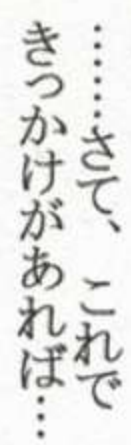 ……さて、これで
きっかけがあれば…